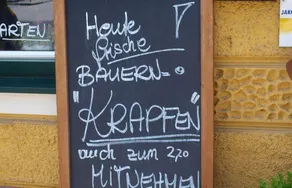 ARTEN
Heute
frische
BAUERN=
"KRAPFEN"
auch zum 2,20
MITNEHMEN
JAK